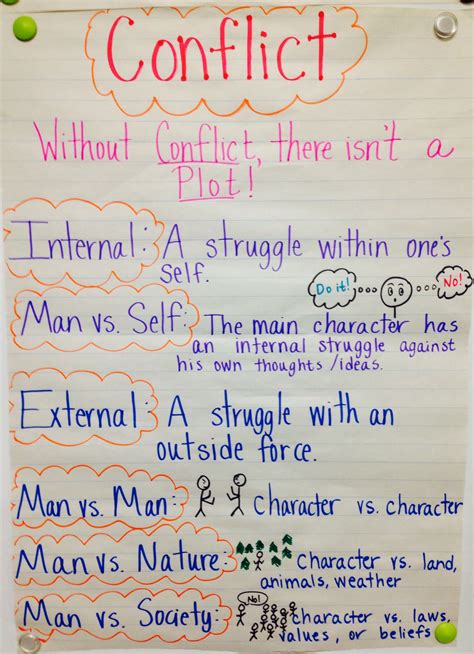 Conflict
Without Conflict, there isn't a
Plot!
Internal: A struggle within one's
self.
Do it! No!
Man vs. Self: The main character has
an internal struggle against
his own thoughts/ideas.
External: A struggle with an
outside force.
Man vs. Man: Character vs. character
Man vs. Nature: Character vs. land,
animals, weather
No!
Man vs. Society: Character vs. laws,
values, or beliefs